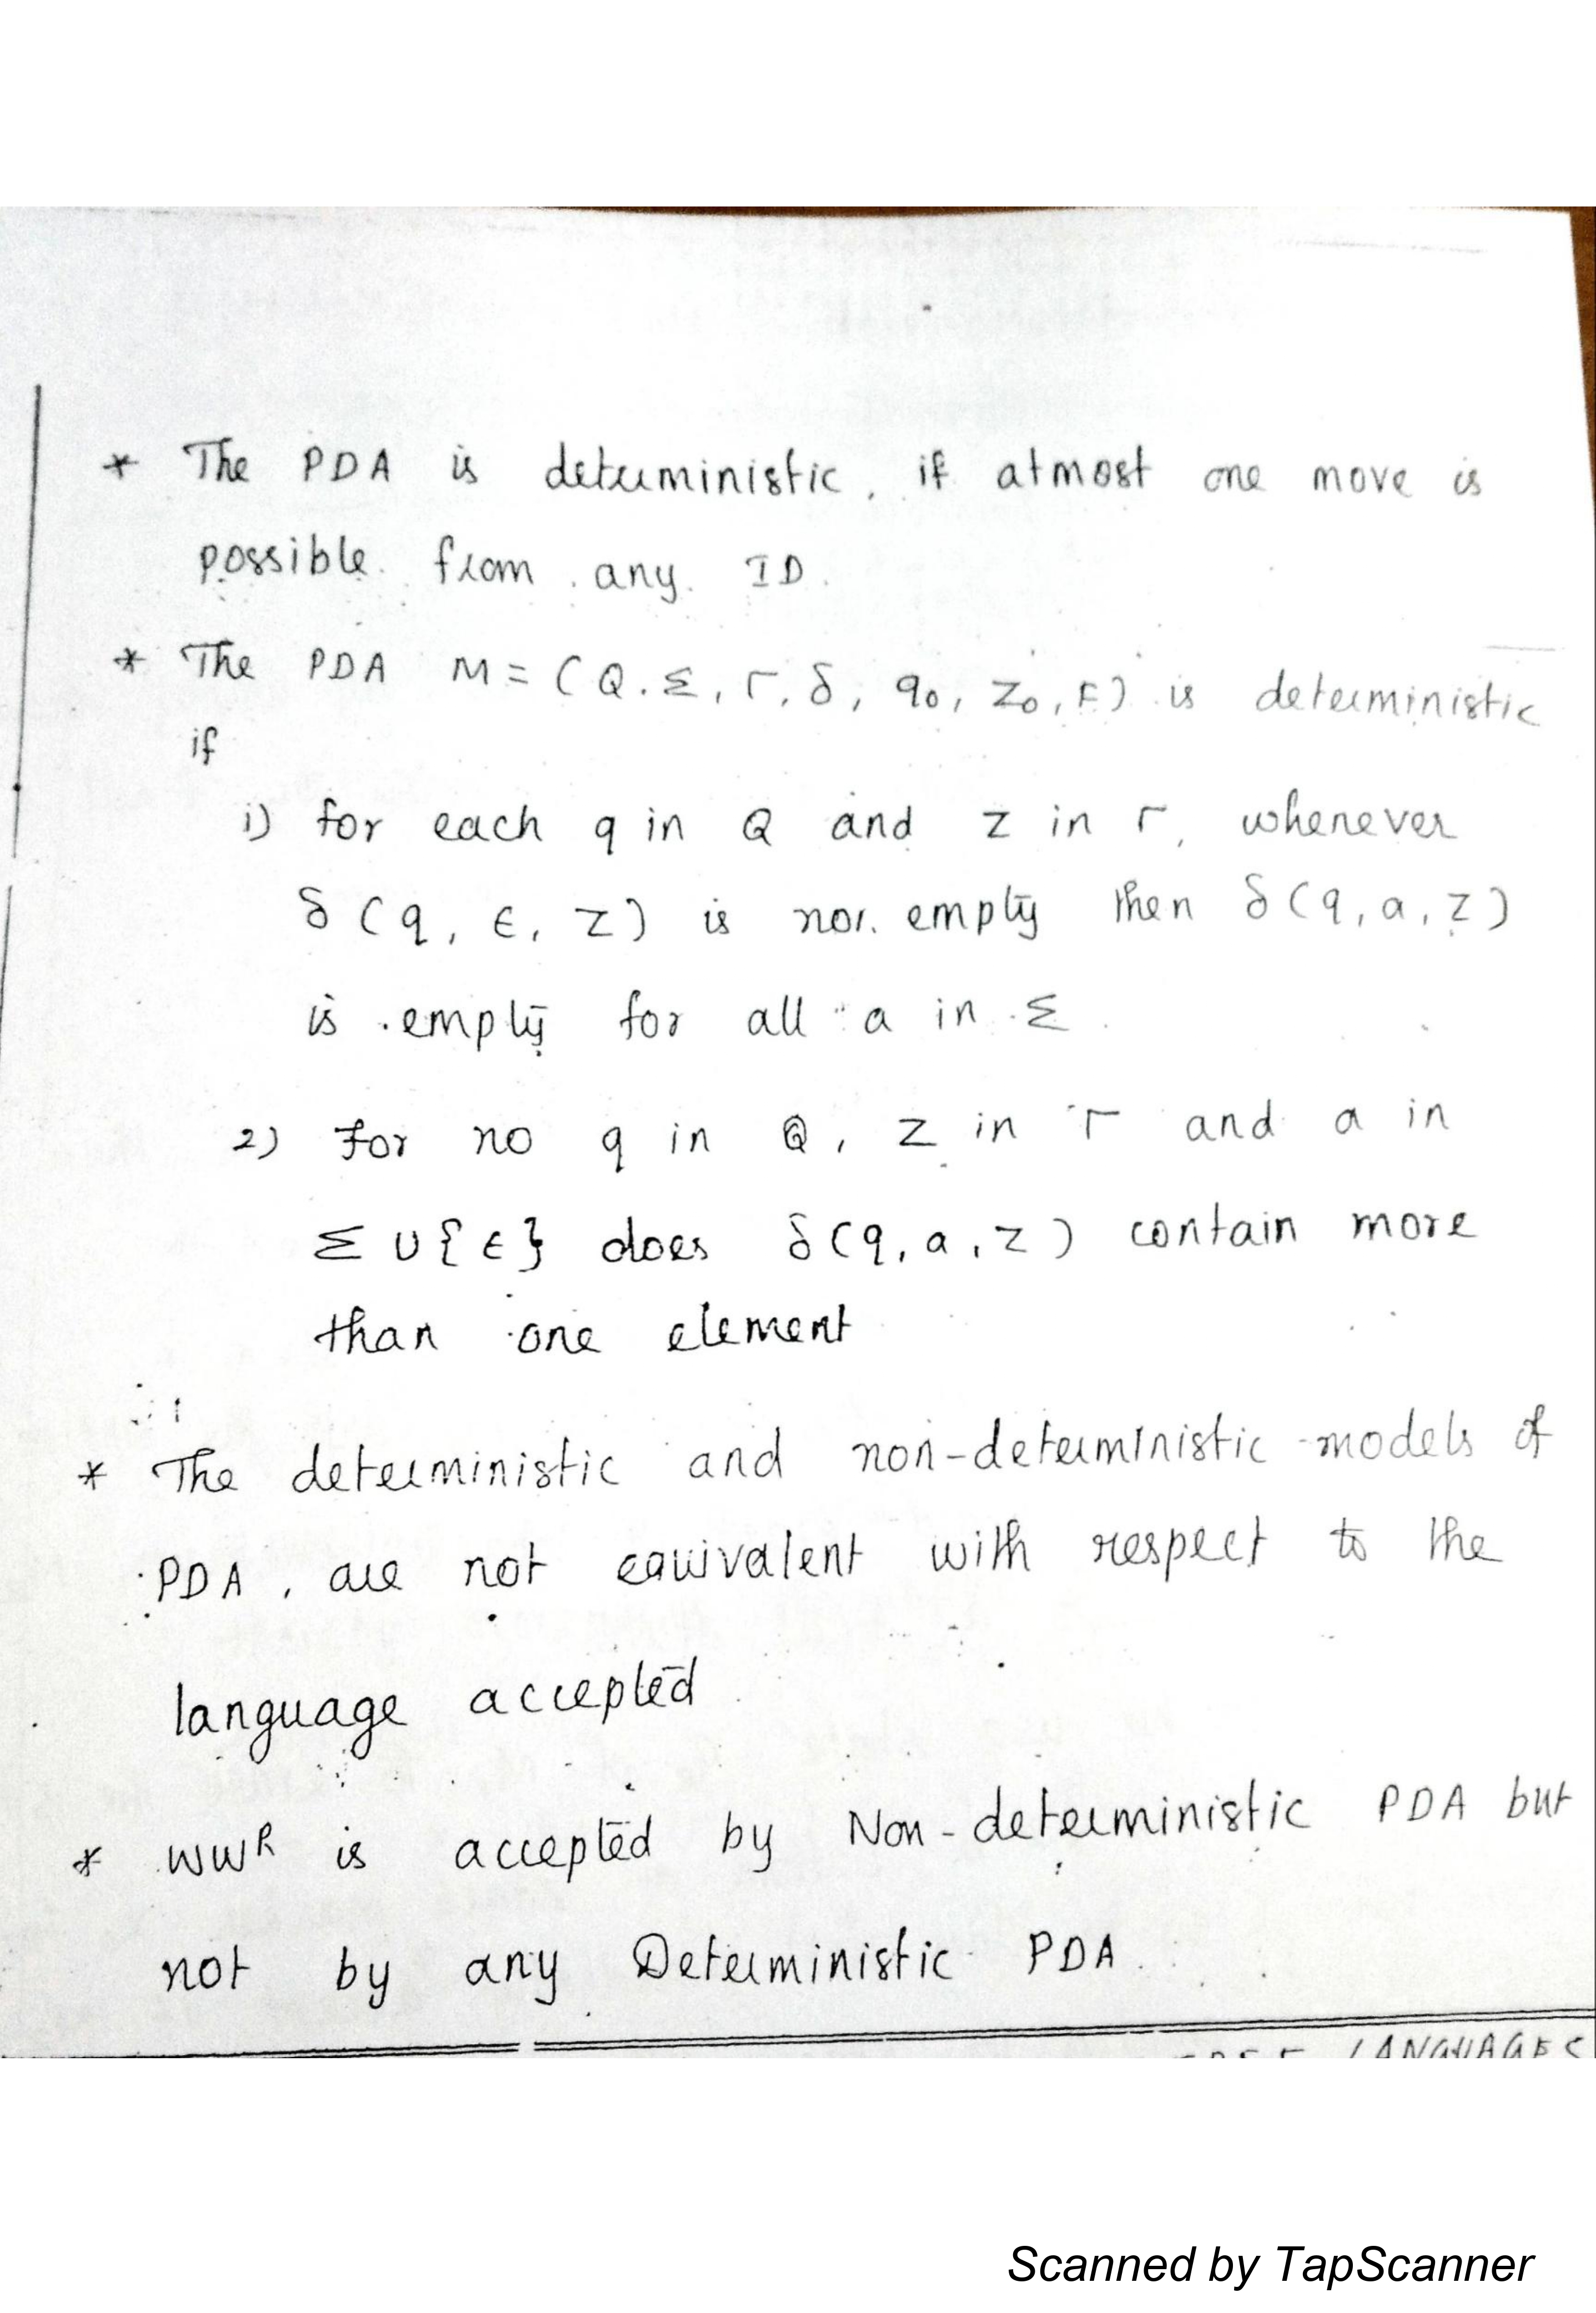 * The PDA is deterministic, if atmost one move is
possible from any ID.
* The PDA M = (Q, Σ, Γ, δ, q₀, Z₀, F) is deterministic
if
i) for each q in Q and Z in Γ, whenever
δ(q, ε, Z) is not empty then δ(q, a, Z)
is empty for all a in Σ.
2) For no q in Q, Z in Γ and a in
Σ ∪ {ε} does δ(q, a, Z) contain more
than one element
* The deterministic and non-deterministic models of
PDA, are not equivalent with respect to the
language accepted
* WWᴿ is accepted by Non-deterministic PDA but
not by any Deterministic PDA.
LANGUAGES
Scanned by TapScanner